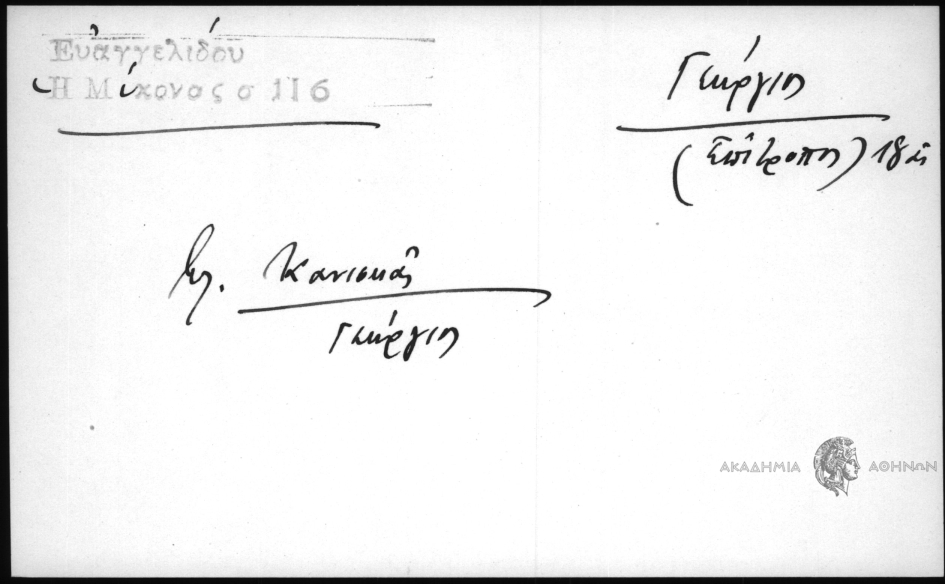 Εὐαγγελίδου
Ἡ Μύκονος σ 116
Γεώργιος
(Επίτροπος) 18 αι
Βλ. Κανισκᾶς
Γεώργιος
ΑΚΑΔΗΜΙΑ ΑΘΗΝΩΝ